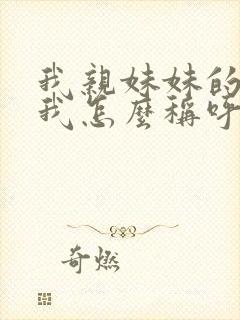 我親妹妹的
我怎麼稱呼
奇燃